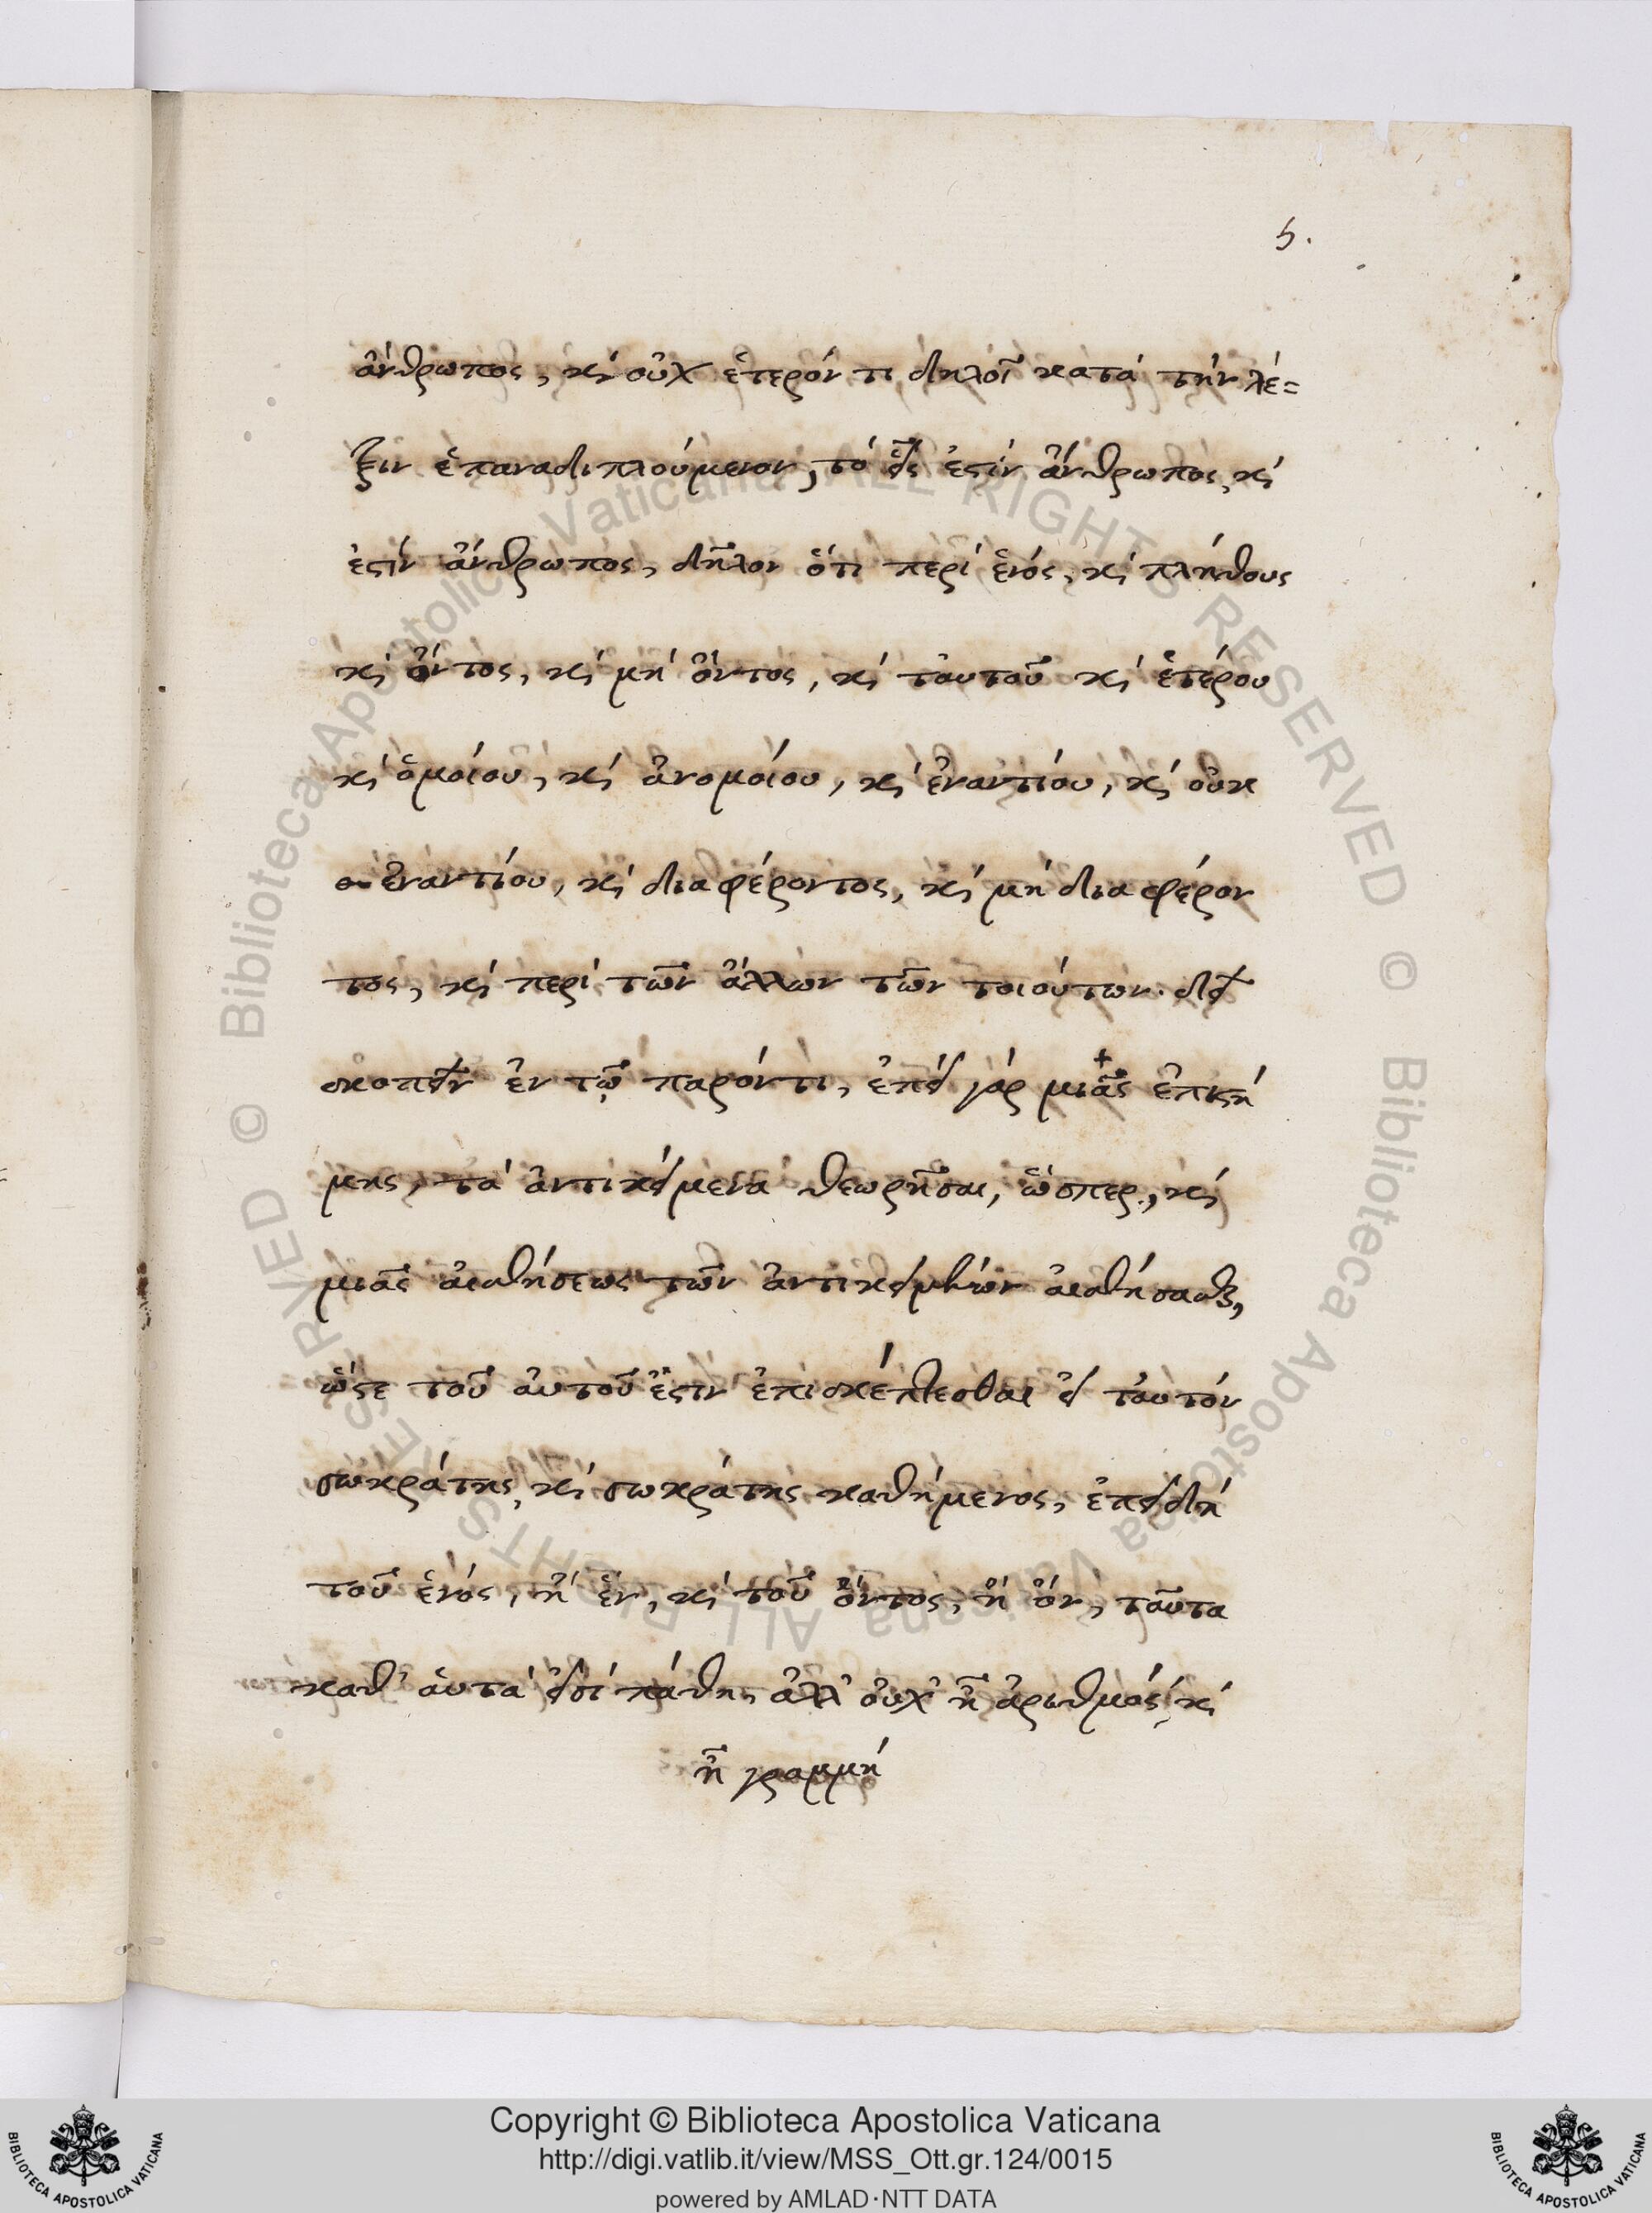 5.
ἄνθρωπος, καὶ οὐχ ἕτερόν τι δηλοῖ κατὰ τὴν λέ=
ξιν ἐπαναδιπλούμενον, τὸ εἷς ἐστὶν ἄνθρωπος, καὶ
ἐστὶν ἄνθρωπος, δῆλον ὅτι περὶ ἑνός, καὶ πλήθους
καὶ ὄντος, καὶ μὴ ὄντος, καὶ ταυτοῦ καὶ ἑτέρου
καὶ ὁμοίου, καὶ ἀνομοίου, καὶ ἐναντίου, καὶ οὐκ
ἐναντίου, καὶ διαφέροντος, καὶ μὴ διαφέρον
τος, καὶ περὶ τῶν ἄλλων τῶν τοιούτων. δεῖ
σκοπεῖν ἐν τῷ παρόντι, ἐπεὶ γὰρ μιᾶς ἐπιστή
μης, τὰ ἀντικείμενα θεωρῆσαι, ὥσπερ, καὶ
μιᾶς αἰσθήσεως τῶν ἀντικειμένων αἰσθήσασθαι,
ὥστε τοῦ αὐτοῦ ἔστιν ἐπισκέπτεσθαι εἰ ταυτὸν
σωκράτης, καὶ σωκράτης καθήμενος, ἐπειδὴ
τοῦ ἑνός, ἢ ἕν, καὶ τοῦ ὄντος, ἢ ὄν, ταῦτα
καθ' αὑτά εἰσί πάθη, ἀλλ' οὐχ' ἢ ἀριθμός, καὶ
ἢ γραμμή
Copyright © Biblioteca Apostolica Vaticana
http://digi.vatlib.it/view/MSS_Ott.gr.124/0015
powered by AMLAD·NTT DATA
BIBLIOTECA APOSTOLICA VATICANA
BIBLIOTECA APOSTOLICA VATICANA
© Biblioteca Apostolica Vaticana ALL RIGHTS RESERVED © Biblioteca Apostolica Vaticana ALL RIGHTS RESERVED